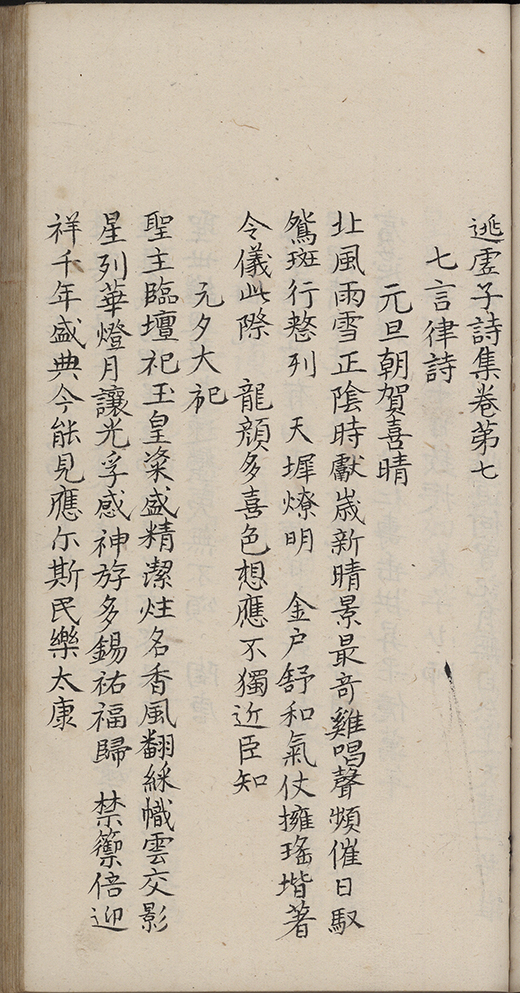 逃虛子詩集卷第七
七言律詩
元旦朝賀喜晴
北風雨雪正陰時獻歲新晴景最奇雞唱聲頻催日馭
鴛班行整列　天墀燎明　金戶舒和氣仗擁瑤堦著
令儀此際　龍顏多喜色想應不獨近臣知
元夕大祀
聖主臨壇祀玉皇粢盛精潔炷名香風翻綵幟雲交影
星列華燈月讓光孚感神㳺多錫祐福歸　禁籞倍迎
祥千年盛典今能見應尓斯民樂太康